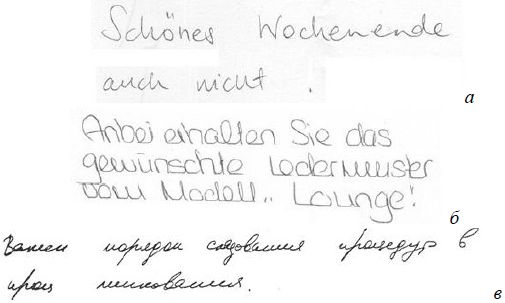 Schönes Wochenende
auch nicht.
а
Anbei erhalten Sie das
gewünschte Ledermuster
vom Modell „Lounge!
б
Важен порядок следования процедур в
в